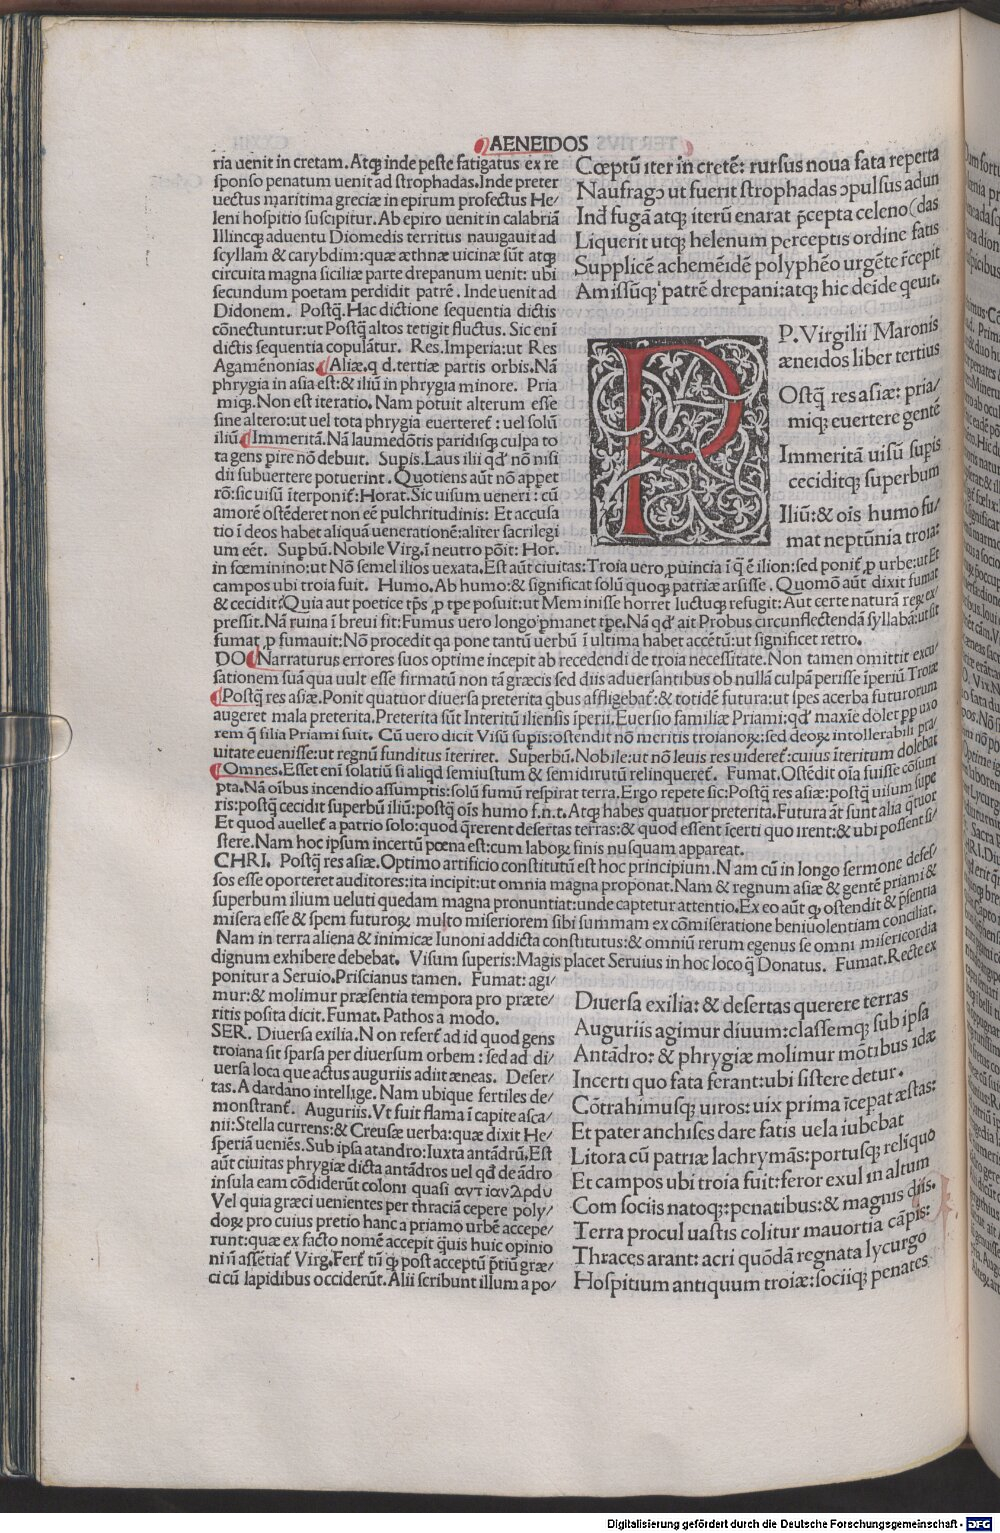 AENEIDOS
ria uenit in cretam. Atq; inde peste fatigatus ex re
sponso penatum uenit ad strophadas. Inde preter
uectus maritima greciæ in epirum profectus He/
leni hospitio suscipitur. Ab epiro uenit in calabriā
Illincq; aduentu Diomedis territus nauigauit ad
scyllam & carybdim: quæ æthnæ uicinæ sūt atq;
circuita magna siciliæ parte drepanum uenit: ubi
secundum poetam perdidit patrē. Inde uenit ad
Didonem. Postq̄. Hac dictione sequentia dictis
cōnectuntur: ut Postq̄ altos tetigit fluctus. Sic enī
dictis sequentia copulātur. Res. Imperia: ut Res
Agamēnonias. Aliæ. q d. tertiæ partis orbis. Nā
phrygia in asia est: & iliū in phrygia minore. Pria
miq;. Non est iteratio. Nam potuit alterum esse
sine altero: ut uel tota phrygia euerteret̄: uel solū
iliū. Immeritā. Nā laumedōtis paridisq; culpa to
ta gens ꝑire nō debuit. Supis. Laus ilii qd̄ nō nisi
dii subuertere potuerint. Quotiens aūt nō appet
rō: sic uisū īterponit̄: Horat. Sic uisum ueneri: cū
amorē ostēderet non eē pulchritudinis: Et accusa
tio ī deos habet aliquā uenerationē: aliter sacrilegi
um eēt. Supbū. Nobile Virg. ī neutro pōit: Hor.
in fœminino: ut Nō semel ilios uexata. Est aūt ciuitas: Troia uero ꝓuincia ī q̄ ē ilion: sed ponit̄ ꝓ urbe: ut Et
campos ubi troia fuit. Humo. Ab humo: & significat solū quoq; patriæ arsisse. Quomō aūt dixit fumat
& cecidit? Quia aut poetice tp̄s ꝓ tp̄e posuit: ut Meminisse horret luctuq; refugit: Aut certe naturā reꝝ ex/
pressit. Nā ruina ī breui fit: Fumus uero longo ꝑmanet tp̄e. Nā qd̄ ait Probus circunflectendā syllabā: ut sit
fumat ꝓ fumauit: Nō procedit qa pone tantū uerbū ī ultima habet accētū: ut significet retro.
DO Narraturus errores suos optime incepit ab recedendi de troia necessitate. Non tamen omittit excu/
sationem suā qua uult esse firmatū non tā græcis sed diis aduersantibus ob nullā culpā perisse īperiū Troiæ
Postq̄ res asiæ. Ponit quatuor diuersa preterita qbus affligebat̄: & totidē futura: ut spes acerba futurorum
augeret mala preterita. Preterita sūt Interitū iliensis īperii. Euersio familiæ Priami: qd̄ maxīe dolet ꝓp uxo
rem q̄ filia Priami fuit. Cū uero dicit Visū supis: ostendit nō meritis troianoꝝ: sed deoꝝ intollerabili pra/
uitate euenisse: ut regnū funditus īteriret. Superbū. Nobile: ut nō leuis res uideret̄: cuius īteritum dolebat
Omnes. Esset enī solatiū si aliqd semiustum & semidirutū relinqueret̄. Fumat. Ostēdit oīa fuisse cōsum
pta. Nā oībus incendio assumptis: solū fumū respirat terra. Ergo repete sic: Postq̄ res asiæ: postq̄ uisum supe
ris: postq̄ cecidit superbū iliū: postq̄ oīs humo f.n.t. Atq; habes quatuor preterita. Futura aūt sunt alia q̄tuor
Et quod auellet̄ a patrio solo: quod q̄rerent desertas terras: & quod essent īcerti quo irent: & ubi possent si/
stere. Nam hoc ipsum incertū pœna est: cum laboꝝ finis nusquam appareat.
CHRI. Postq̄ res asiæ. Optimo artificio constitutū est hoc principium. Nam cū in longo sermone defes/
sos esse oporteret auditores: ita incipit: ut omnia magna proponat. Nam & regnum asiæ & gentē priami &
superbum ilium ueluti quedam magna pronuntiat: unde captetur attentio. Ex eo aūt qꝫ ostendit & p̄sentia
misera esse & spem futuroꝝ multo miseriorem sibi summam ex cōmiseratione beniuolentiam conciliat.
Nam in terra aliena & inimicæ Iunoni addicta constitutus: & omniū rerum egenus se omni misericordia
dignum exhibere debebat. Visum superis: Magis placet Seruius in hoc loco q̄ Donatus. Fumat. Recte ex
ponitur a Seruio. Priscianus tamen. Fumat: agi/
mur: & molimur præsentia tempora pro præte/
ritis posita dicit. Fumat. Pathos a modo.
SER. Diuersa exilia. Non refert̄ ad id quod gens
troiana sit sparsa per diuersum orbem: sed ad di/
uersa loca que actus auguriis adiit æneas. Deser/
tas. A dardano intellige. Nam ubique fertiles de/
monstrant̄. Auguriis. Vt fuit flama ī capite asca/
nii: Stella currens: & Creusæ uerba: quæ dixit He/
speriā ueniēs. Sub ipsa atandro: Iuxta antādrū. Est
aūt ciuitas phrygiæ dicta antādros uel qd̄ de ādro
insula eam cōdiderūt coloni quasi
Vel quia græci uenientes per thraciā cepere poly/
doꝝ pro cuius pretio hanc a priamo urbē accepe/
runt: quæ ex facto nomē accepit q̄uis huic opinio
ni ū assētiat̄ Virg. Fert̄ tū qꝫ post acceptū p̄tiū græ/
ci cū lapidibus occiderūt. Alii scribunt illum a po/
Cœptū iter in cretē: rursus noua fata reperta
Naufragꝰ ut fuerit strophadas ꝯpulsus adun
Ind̄ fugā atq; iterū enarat p̄cepta celeno (das
Liquerit utq; helenum perceptis ordine fatis
Supplicē achemēidē polyphēo urgēte r̄cepit
Amissūq; patrē drepani: atq; hic deīde qeuit.
P. Virgilii Maronis
æneidos liber tertius
Ostq̄ res asiæ: pria/
miq; euertere gentē
Immeritā uisū supis
ceciditq; superbum
Iliū: & oīs humo fu/
mat neptūnia troia:
Diuersa exilia: & desertas querere terras
Auguriis agimur diuum: classemq; sub ipsa
Antādro: & phrygiæ molimur mōtibus idæ
Incerti quo fata ferant: ubi sistere detur.
Cōtrahimusq; uiros: uix prima īcepat æstas:
Et pater anchises dare fatis uela iubebat
Litora cū patriæ lachrymās: portusq; relīquo
Et campos ubi troia fuit: feror exul in altum
Com sociis natoq;: penatibus: & magnis diis.
Terra procul uastis colitur mauortia cāpis:
Thraces arant: acri quōdā regnata lycurgo
Hospitium antiquum troiæ: sociiq; penates
Digitalisierung gefördert durch die Deutsche Forschungsgemeinschaft - DFG